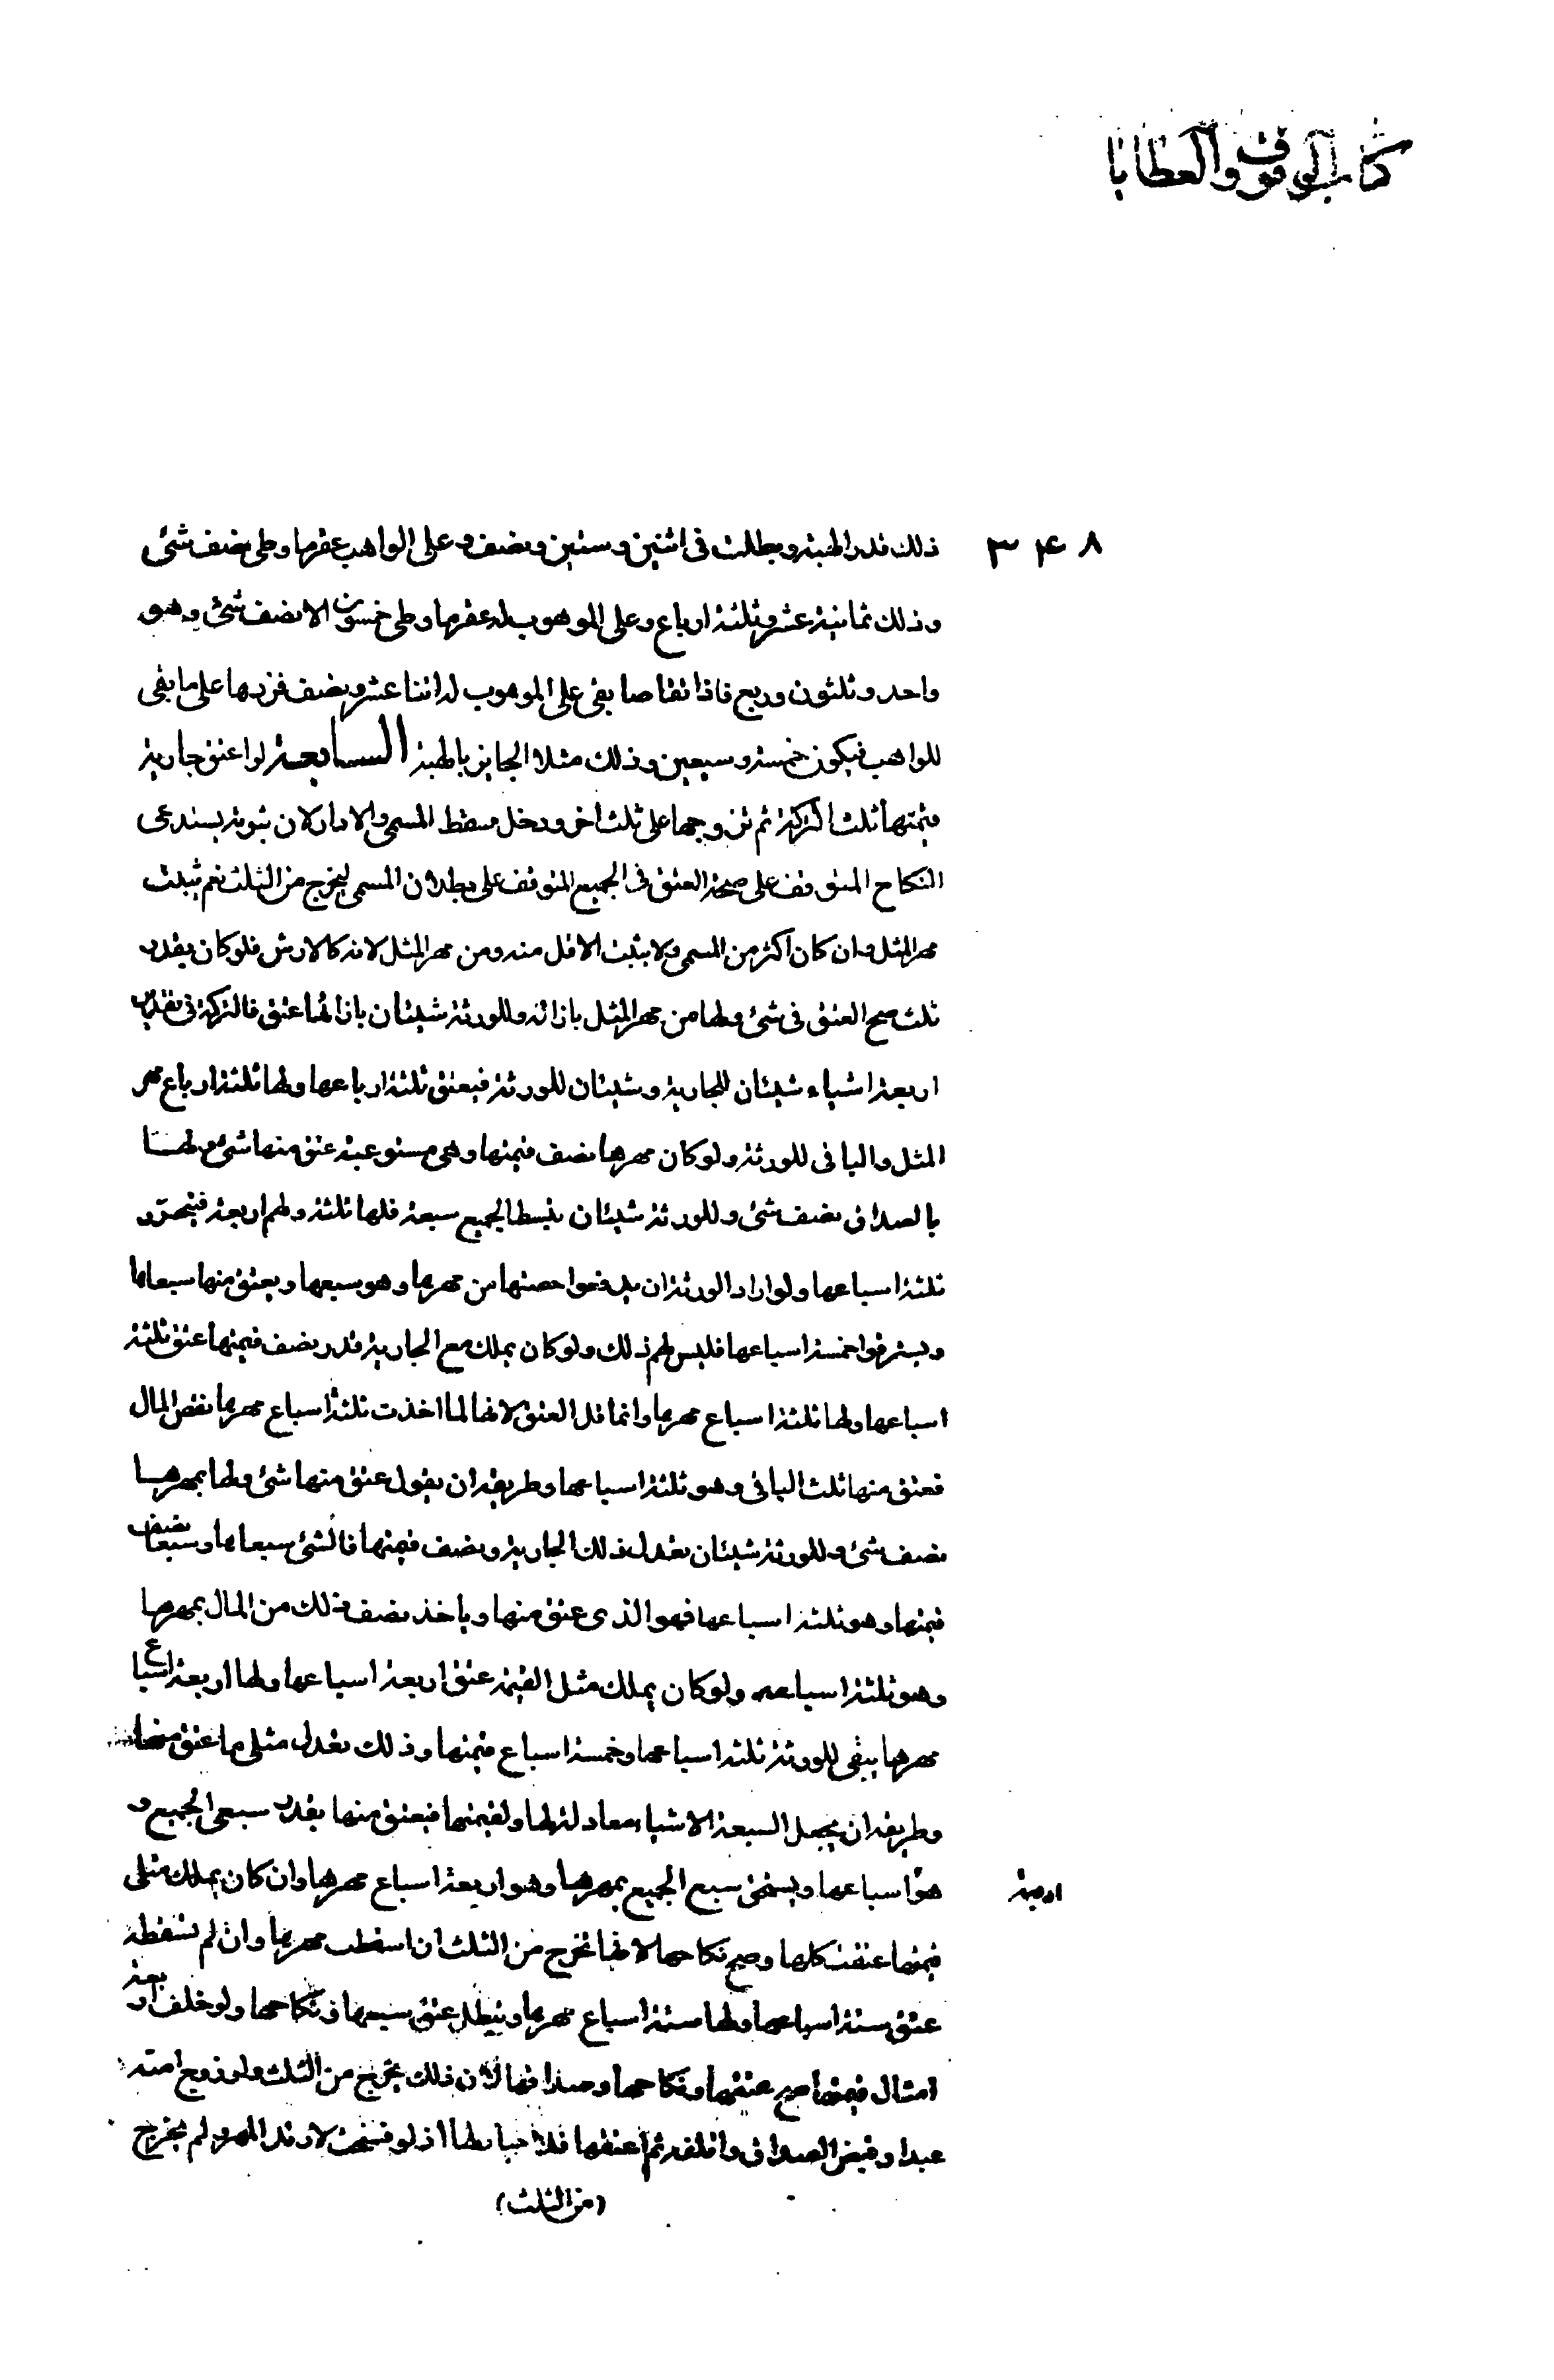 كتاب الوقوف والعطايا
٣۴٨
ذلك قدر الهبة وبطلت فى اثنين وستين ونصف وعلى الواهب عقرها وطى نصف شئ
وذلك ثمانية عشر وثلثة ارباع وعلى الموهوب له عقرها وطى خمسون الا نصف شئ وهو
واحد وثلثون وربع فاذا تقاصا بقى على الموهوب له اثنا عشر ونصف فزدها على ما بقى
للواهب فيكون خمسة وسبعين وذلك مثلا الجايز بالهبة السابعة لو اعتق جارية
قيمتها ثلث التركة ثم تزوجها على ثلث اخر ودخل سقط المسمى والا دار لان ثبوته يستدعى
النكاح المتوقف على صحة العتق فى الجميع المتوقف على بطلان المسمى ليخرج من الثلث نعم يثبت
مهر المثل وان كان اكثر من المسمى ولا يثبت الاقل منه ومن مهر المثل لانه كالارش فلو كان بقدر
ثلث صح العتق فى شئ ولها من مهر المثل بازائه وللورثة شيئان بازائهما عتق فالتركة فى تقدير
اربعة اشياء شيئان للجارية وشيئان للورثة فيعتق ثلثة ارباعها ولها ثلثة ارباع مهر
المثل والباقى للورثة ولو كان مهرها نصف قيمتها وهى مستوعبة عتق منها شئ ولها
بالصداق نصف شئ وللورثة شيئان يبسط الجميع سبعة فلها ثلثة ولهم اربعة فيتحرر
ثلثة اسباعها ولو اراد الورثة ان يدفعوا حصتها من مهرها وهو سبعها ويعتق منها سبعاها
ويسترقوا خمسة اسباعها فليس لهم ذلك ولو كان يملك مع الجارية قدر نصف قيمتها عتق ثلثة
اسباعها ولها ثلثة اسباع مهرها وانما قل العتق لانها لما اخذت ثلثة اسباع مهرها نقص المال
فعتق منها ثلث الباقى وهو ثلثة اسباعها وطريقه ان يقول عتق منها شئ ولها بمهرها
نصف شئ وللورثة شيئان تعدل ذلك الجارية ونصف قيمتها فالشئ سبعاها وسبعا نصف
قيمتها وهو ثلثة اسباعها فهو الذى عتق منها وياخذ نصف ذلك من المال بمهرها
وهو ثلثة اسباعه ولو كان يملك مثل القيمة عتق اربعة اسباعها ولها اربعة اسباع
مهرها يبقى للورثة ثلثة اسباعها وخمسة اسباع قيمتها وذلك تعدل مثلى ما عتق منها
وطريقه ان يجعل السبعة الاشياء معادلة لها ولقيمتها فيعتق منها بقدر سبعى الجميع و
هو اسباعها ويستحق سبع الجميع بمهرها وهو اربعة اسباع مهرها وان كان يملك مثلى
اربعة
قيمتها عتقت كلها وصح نكاحها لانها تخرج من الثلث ان اسقطت مهرها وان لم تسقطه
عتق ستة اسباعها ولها ستة اسباع مهرها ويبطل عتق سبعها ونكاحها ولو خلف اربعة
امثال قيمتها صح عتقها ونكاحها وصداقها لان ذلك يخرج من الثلث ولو زوج امته
عبدا وقبض الصداق واتلفه ثم اعتقها فلا خيار لها اذ لو فسخت لارتد المهر ولم يخرج
(من الثلث)